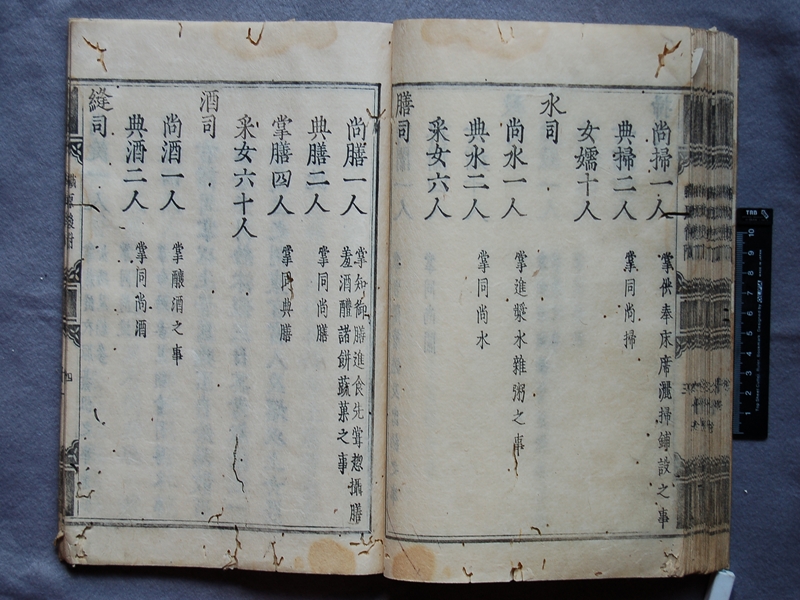 尚掃一人 掌供奉床席灑掃鋪設之事
典掃二人 掌同尚掃
女嬬十人
水司
尚水一人 掌進漿水雜粥之事
典水二人 掌同尚水
采女六人
膳司
尚膳一人 掌知御膳進食先嘗惣攝膳
羞酒醴諸餅蔬菓之事
典膳二人 掌同尚膳
掌膳四人 掌同典膳
采女六十人
酒司
尚酒一人 掌釀酒之事
典酒二人 掌同尚酒
縫司
四